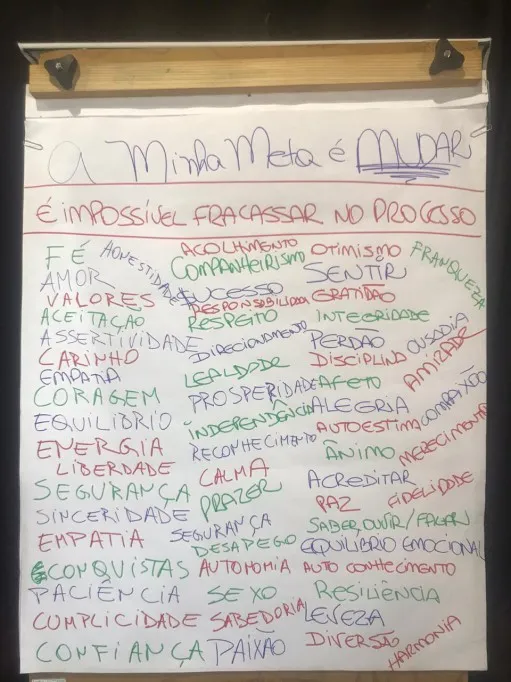 A Minha Meta é MUDAR
É IMPOSSÍVEL FRACASSAR NO PROCESSO
FÉ
AMOR
VALORES
ACEITAÇÃO
ASSERTIVIDADE
CARINHO
EMPATIA
CORAGEM
EQUILIBRIO
ENERGIA
LIBERDADE
SEGURANÇA
SINCERIDADE
EMPATIA
CONQUISTAS
PACIÊNCIA
CUMPLICIDADE
CONFIANÇA
HONESTIDADE
ACOLHIMENTO
COMPANHEIRISMO
SUCESSO
RESPONSABILIDADE
RESPEITO
DIRECIONAMENTO
LEALDADE
PROSPERIDADE
INDEPENDÊNCIA
RECONHECIMENTO
CALMA
PRAZER
SEGURANÇA
DESAPEGO
AUTOMOMIA
SEXO
SABEDORIA
PAIXÃO
OTIMISMO
SENTIR
GRATIDÃO
INTEGRIDADE
PERDÃO
DISCIPLINA
AFETO
ALEGRIA
AUTOESTIMA
ÂNIMO
ACREDITAR
PAZ
SABER OUVIR/FALAR
EQUILIBRIO EMOCIONAL
AUTO CONHECIMENTO
RESILIÊNCIA
LEVEZA
DIVERSÃO
FRANQUEZA
OUSADIA
AMIZADE
COMPAIXÃO
MERECIMENTO
FIDELIDADE
HARMONIA